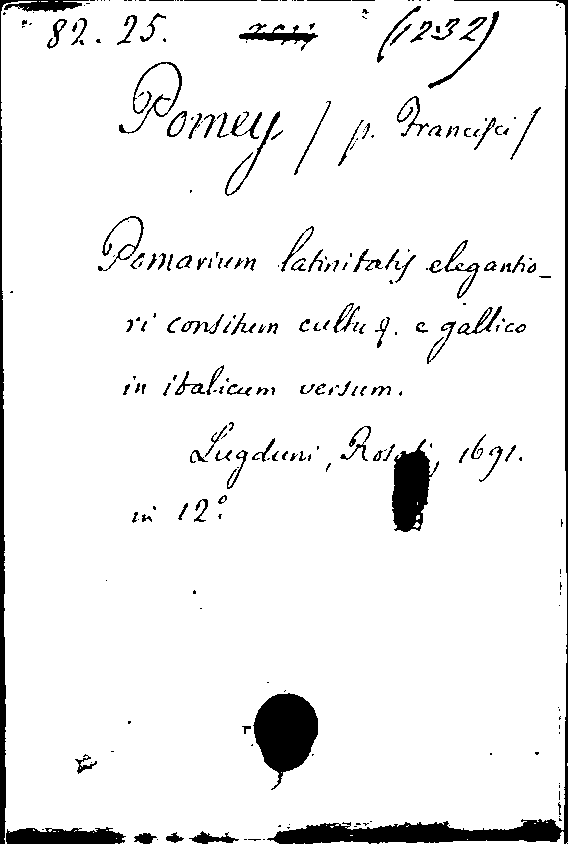 82.25. (1232)
Pomey / p. Francisci /
Pomarium latinitatis elegantio-
ri consitum cultu q. e gallico
in italicum versum.
Lugduni, 1691.
in 12º